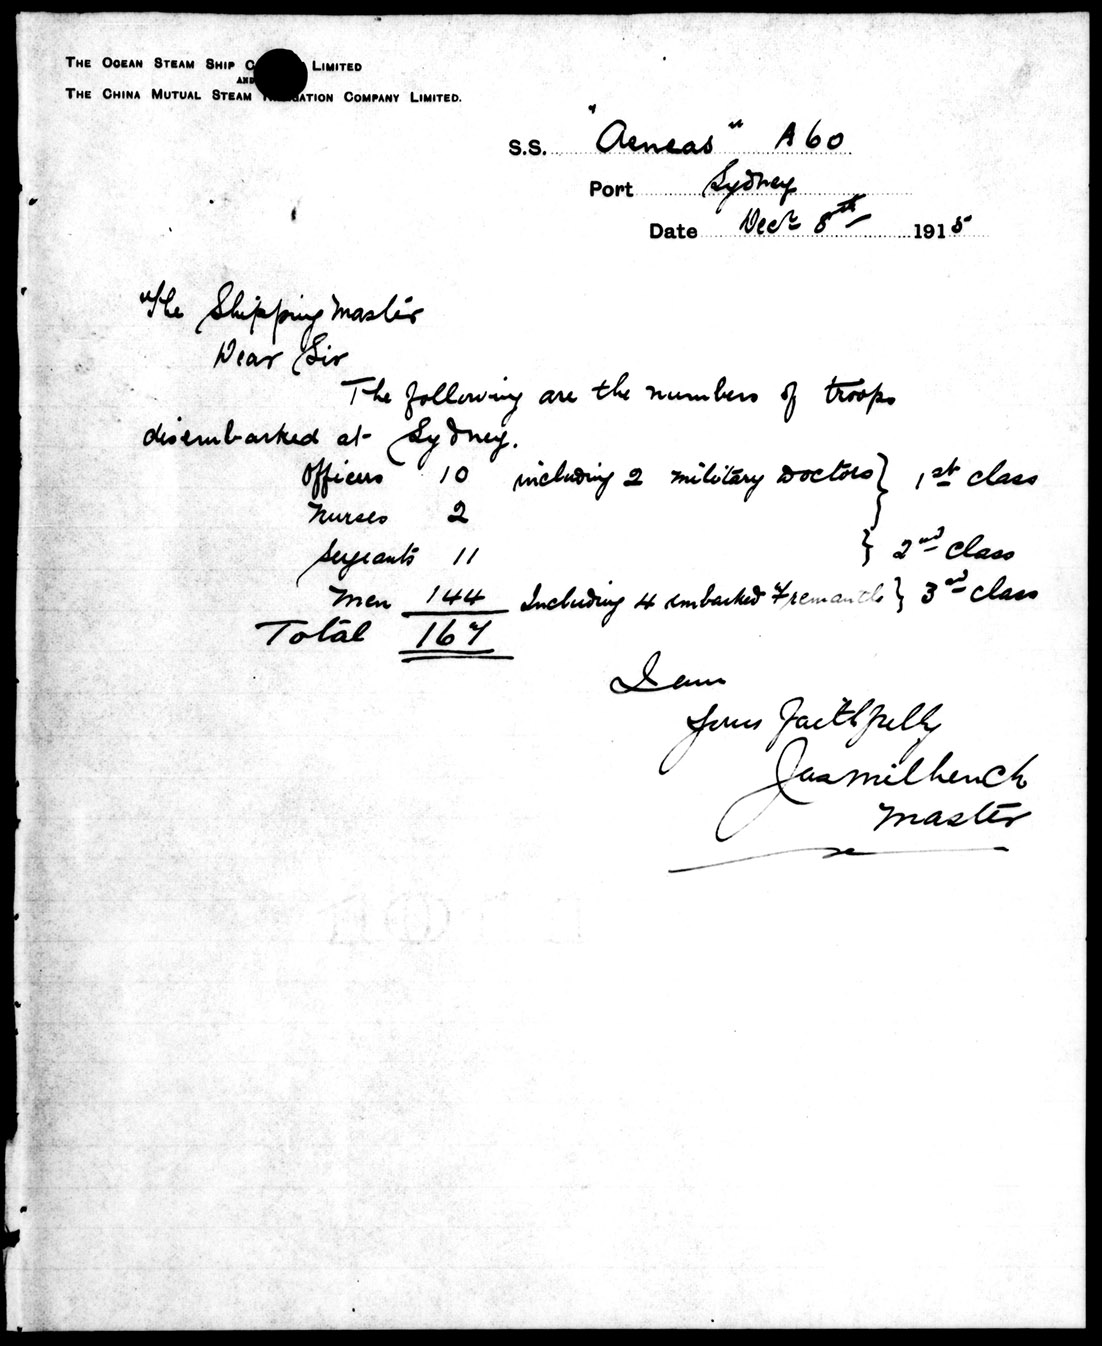 THE OCEAN STEAM SHIP C LIMITED
AND
THE CHINA MUTUAL STEAM GATION COMPANY LIMITED.
S.S. "Aeneas" A60
Port Sydney
Date Decr 8th 1915
The Shipping Master
Dear Sir
The following are the numbers of troops
disembarked at Sydney.
Officers 10 including 2 military Doctors } 1st class
Nurses 2
Sergeants 11 } 2nd class
Men 144 Including 4 embarked Fremantle } 3rd class
Total 167
I am
Yours faithfully
Jas Milhench
Master